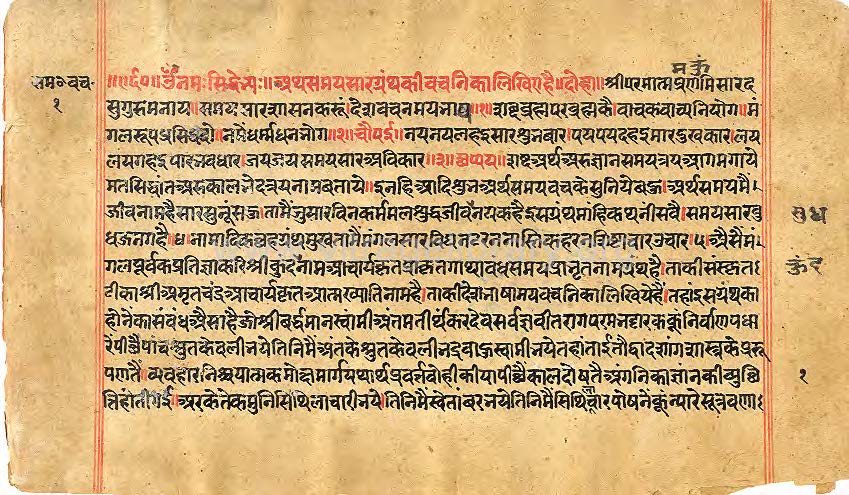 समय॰वच॰
१
॥ॐ नमः सिद्धेभ्यः॥अथ समयसार ग्रंथ की वचनिका लिखिए है॥दोहा॥श्री परमात्म प्रणमि सार द
सुगुरु मनाय॥समय सार शासन करूं देश वचन मय ॥१॥शब्द ब्रह्म पर ब्रह्म कै।वाचक वाच्य नियोग।मं
गल रूप प्रसिद्ध ।नमौं धर्म धन जोग॥२॥चौपई॥नय नय लहइ सार शुभ वार।पय पय दहइ मार दुख कार।लय
लय गहइ पार भव धार।जय जय समयसार अविकार॥३॥छप्पय॥शब्द अर्थ अरु ज्ञान समय त्रय आगम गाये
मत सिद्धांत अरु काल भेद त्रय नाम बताये॥इनहि आदि शुभ अर्थ समय वच के सुनिये बहु।अर्थ समय मै।
जीव नाम है सार सुनूं सहु।तामैं जु सार विन कर्म मल शुद्ध जीव नय कहै।इस ग्रंथ मांहि कथनी सबै।समयसार बु
ध जन गहै॥४॥नामादिक छह ग्रंथ मुख तामैं मंगल सार।विघन हरन नासिक हरन शिष्टाचार उचार॥५॥ऐसैं मं
गल पूर्वक प्रतिज्ञा करि श्री कुंदनाम आचार्य कृत प्राकृत गाथा बंध समय प्राभृत नाम ग्रंथ है।ताकी संस्कृत
टीका श्री अमृतचंद्र आचार्य कृत आत्मख्याति नाम है।ताकी देश भाषा मय वचनिका लिखिये है।तहां इस ग्रंथ का
होने का संबंध ऐसा है जो श्री वर्द्धमान स्वामी अंतम तीर्थंकर देव सर्वज्ञ वीतराग परम भट्टारक कूं निर्वाण पधा
रें पीछै पांच श्रुत केवली भये तिनि मैं अंत के श्रुत केवली भद्रबाहु स्वामी भये तहां तांई तौ द्वादशांग शास्त्र के प्ररू
पण तैं व्यवहार निश्चयात्मक मोक्षमार्ग यथार्थ प्रवर्त्तवो ही कीया पीछै काल दोष तैं अंगनि का ज्ञान की व्युच्छि
त्ति होती गई।अर केतेक मुनि सिथिलाचारी भये।तिनि मैं स्वेतांबर भये तिनि मैं पोषने कूं न्यारे सूत्र वणा
१